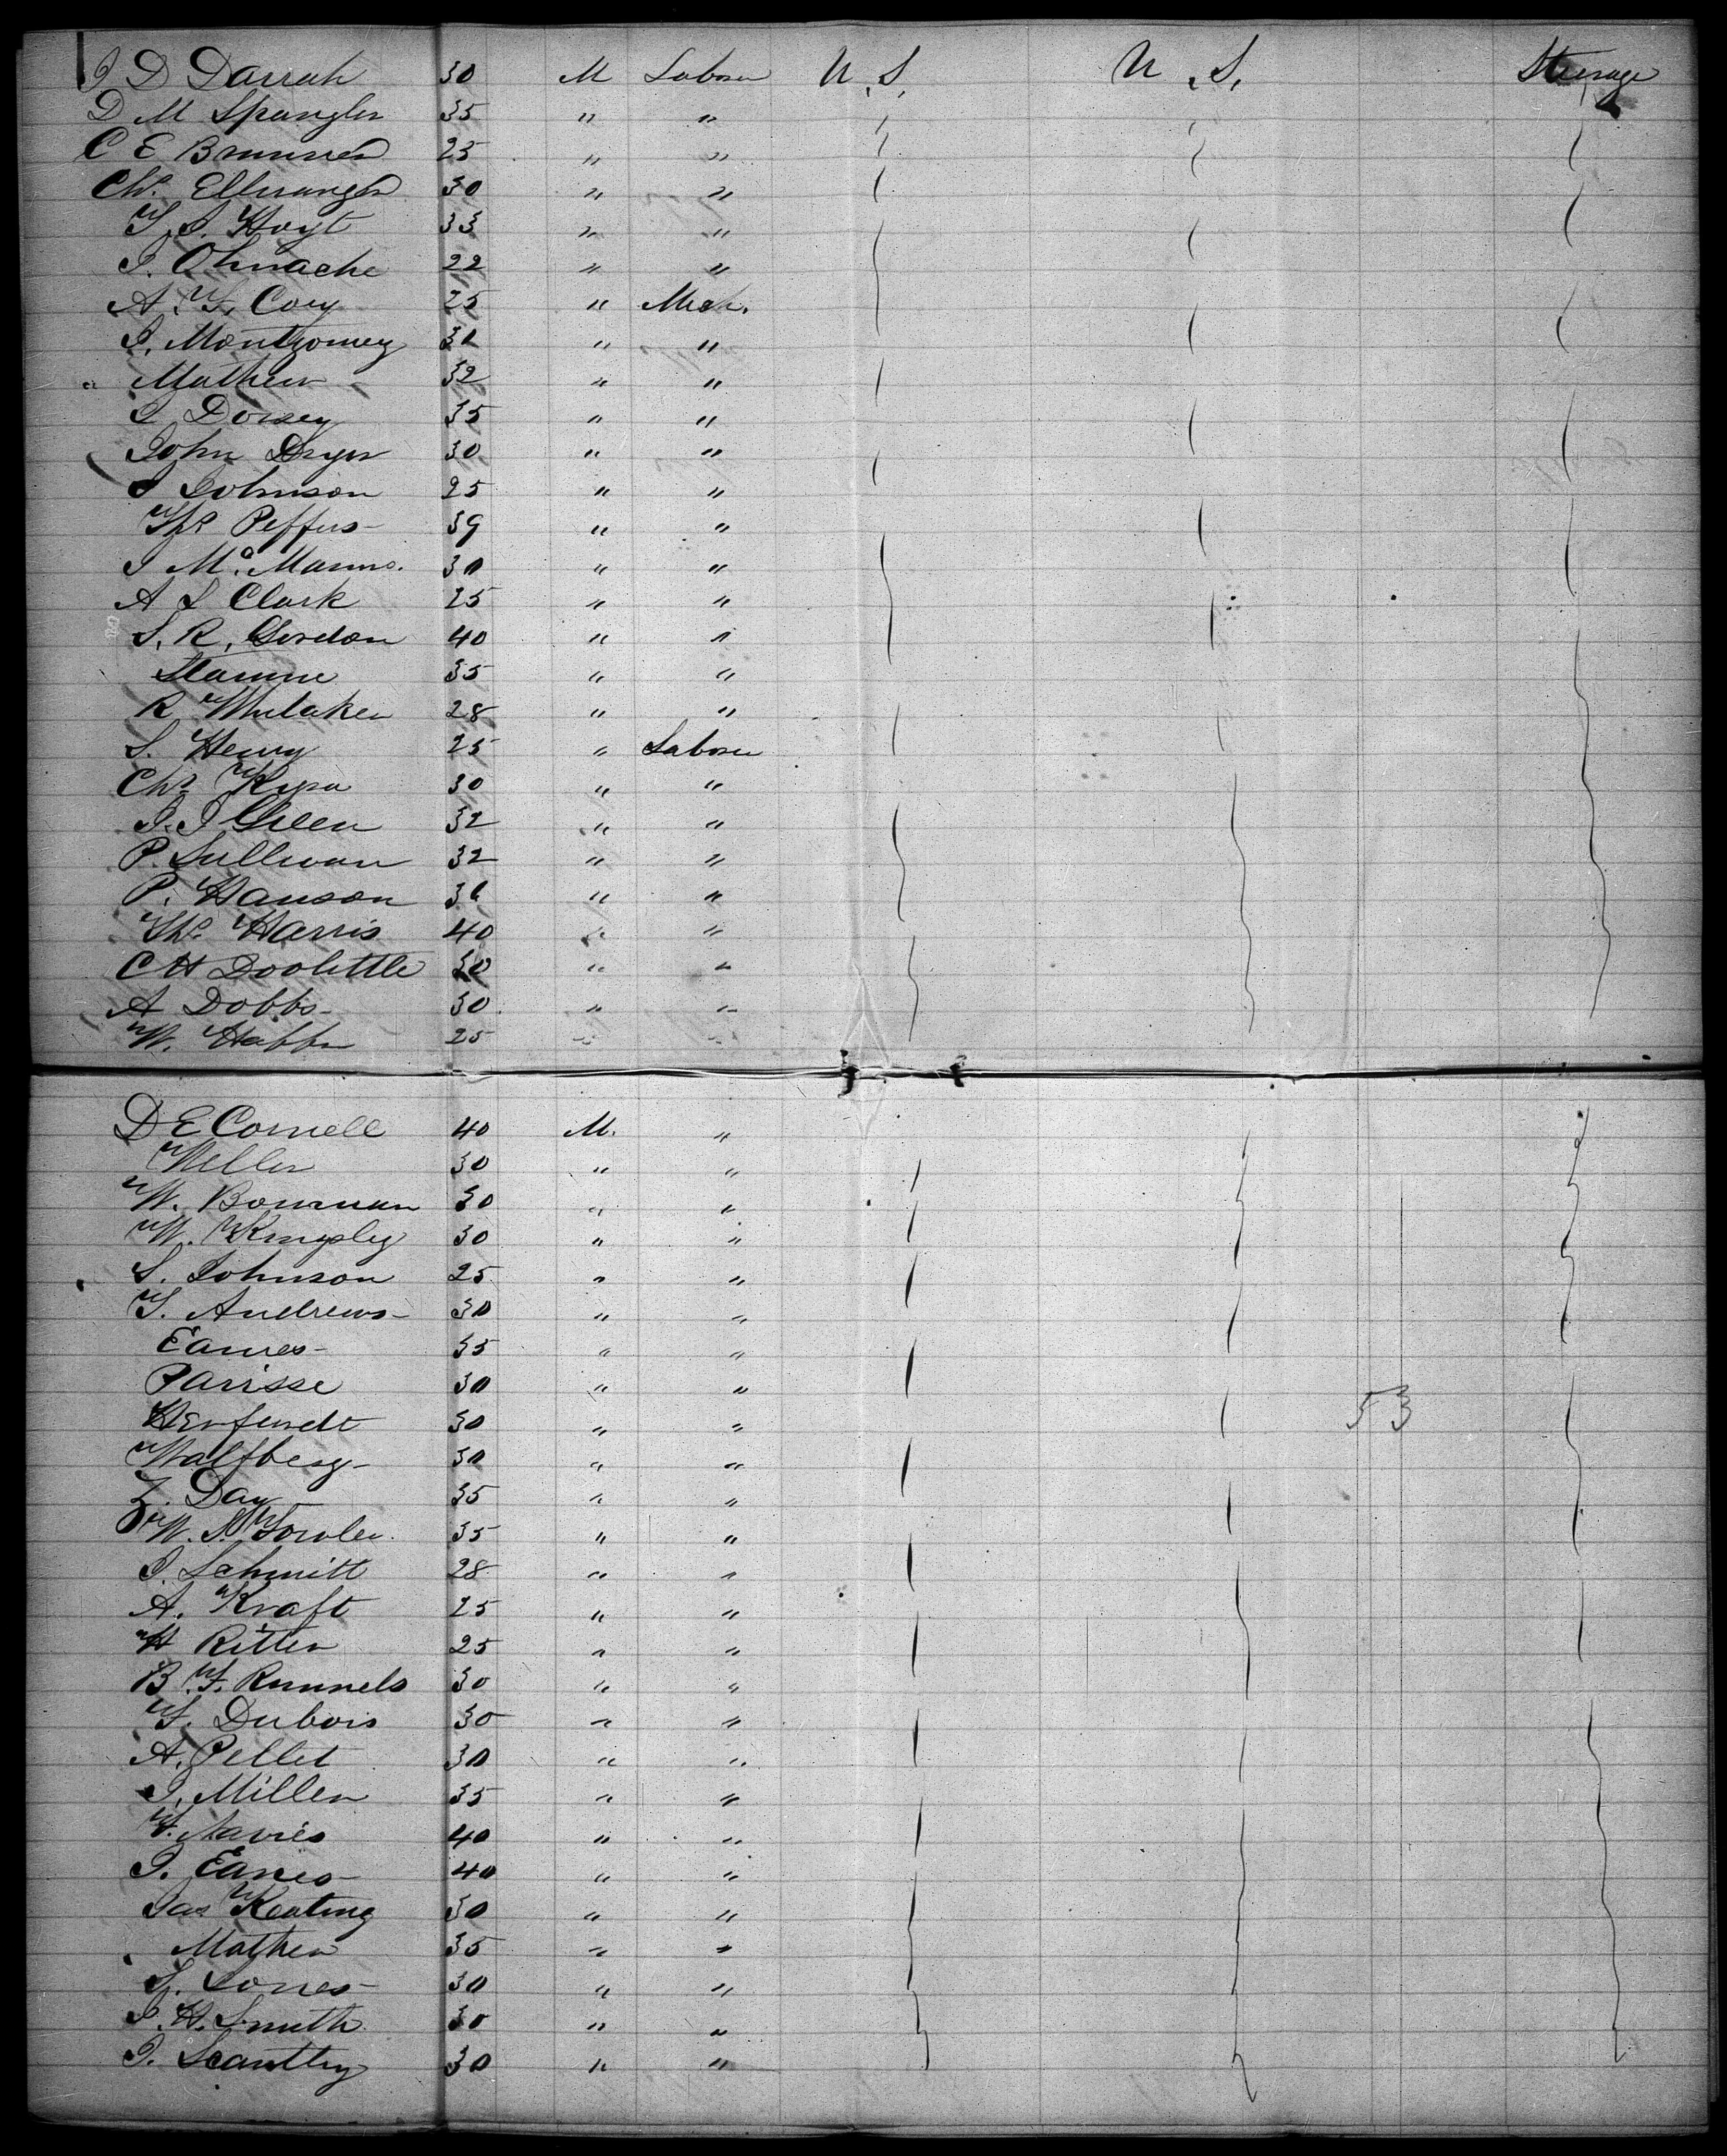 J D Darrah 30 M Laborer U.S. U.S. Steerage
D M Spangler 35 " "
C E Brunner 25 " "
Chs. Ellwanger 30 " "
T. S. Hoyt 33 " "
J. Ohnache 22 " "
A. T. Cory 25 " Mech.
J. Montgomery " "
Mathew 32 " "
J Dorsey 35 " "
John Dryer 30 " "
J Johnson 25 " "
Peffers 39 " "
J Mc. Manus. 30 " "
A L Clark 25 " "
S. R. Gordon 40 " "
35 " "
R Whitaker 28 " "
S. Henry 25 " Laborer
Chs 30 " "
J. J Green 32 " "
P. Sullivan 32 " "
P. Hanson " "
Ths. Harris 40 " "
C H Doolittle 30 " "
A Dobbs 30 " "
W. 25 " "
D E Cornell 40 M. "
Weller 30 " "
W. Bowman 30 " "
W. Kingsley 30 " "
S. Johnson 25 " "
T. Andrews 30 " "
Eames 35 " "
Parisse 30 " "
30 " " 53
Walfberg 30 " "
Z. Day 35 " "
W. N. Fowler 35 " "
J. Schmitt 28 " "
A. Kraft 25 " "
H Ritter 25 " "
B. F. Runnels 30 " "
F. Dubois 30 " "
A. Pellet 30 " "
J. Miller 35 " "
40 " "
J. Eames 40 " "
Jas Keating 30 " "
Mather 35 " "
S. Jones 30 " "
J. H. Smith 30 " "
J. Scantley 30 " "